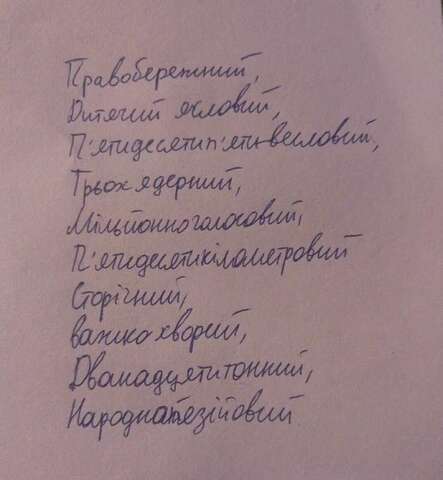 Правобережний,
Дитячий ясловий,
П'ятидесятип'ятивесловий,
Трьохядерний,
Мільйонноголосовий,
П'ятидесятикілометровий
Сторічний,
важкохворий,
Дванадцятитонний,